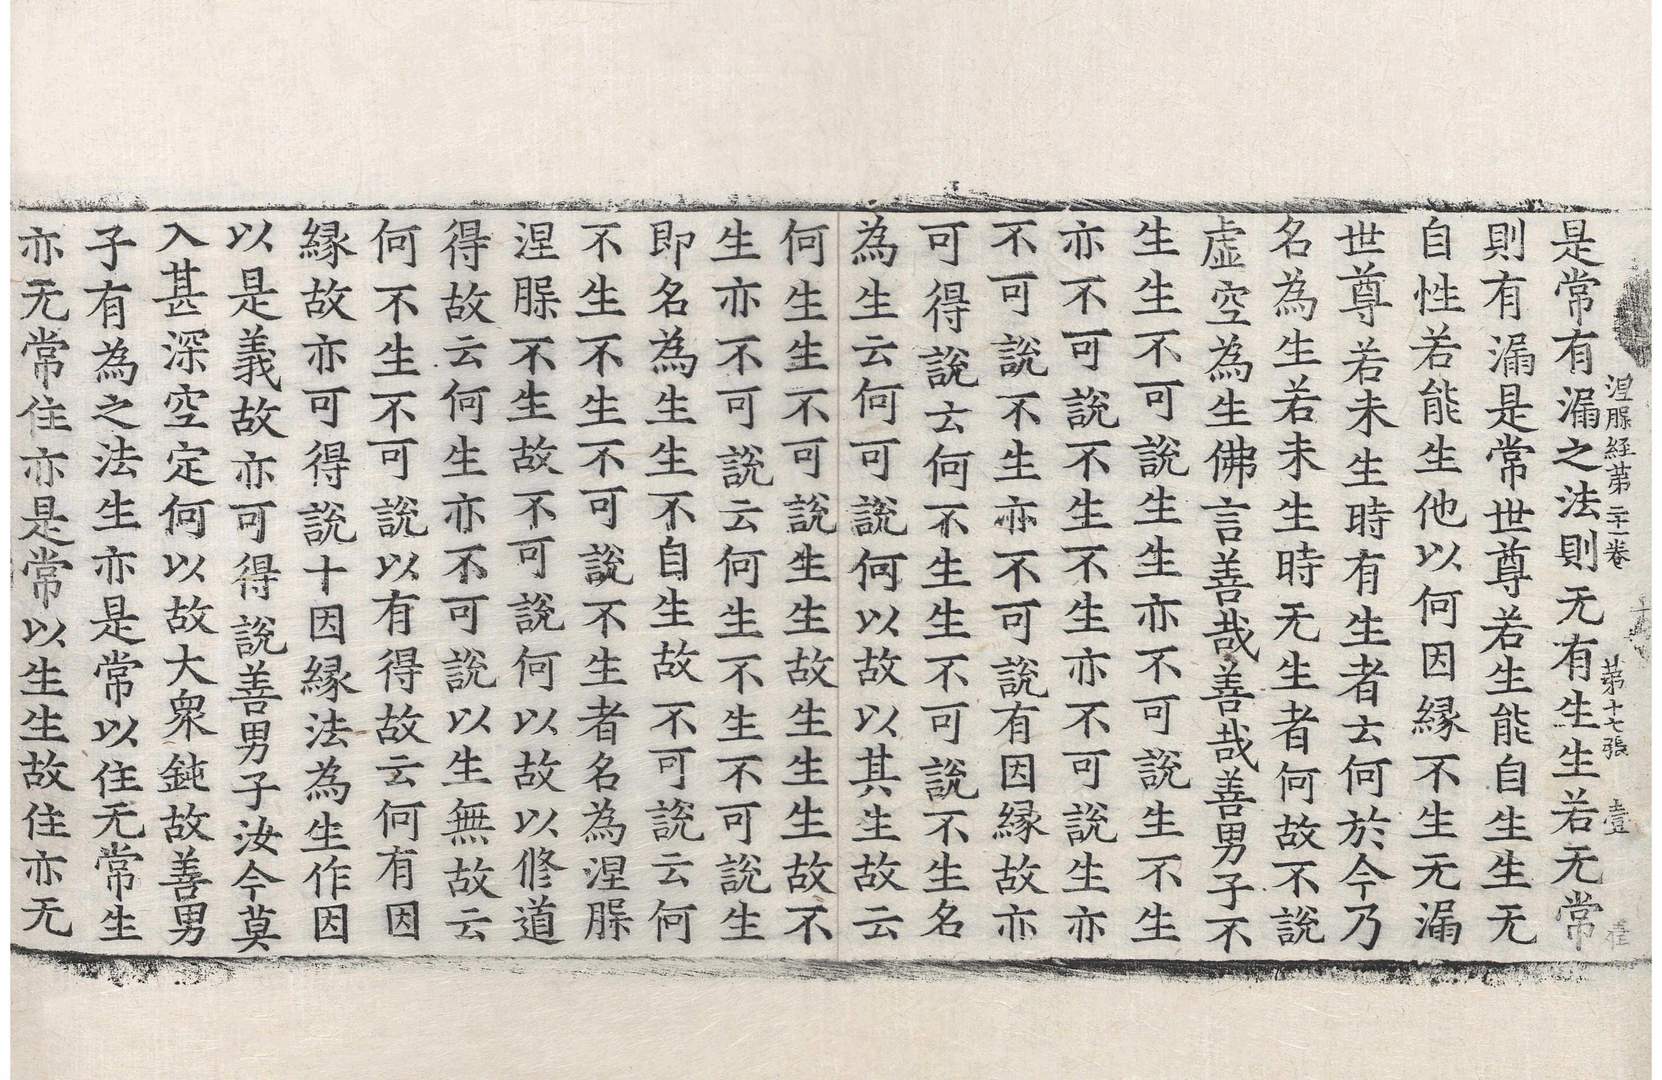 涅槃経苐二十一卷 苐十七張 壹
是常有漏之法則无有生生若无常
則有漏是常世尊若生能自生生无
自性若能生他以何因縁不生无漏
世尊若未生時有生者云何於今乃
名為生若未生時无生者何故不說
虛空為生佛言善哉善哉善男子不
生生不可說生生亦不可說生不生
亦不可說不生不生亦不可說生亦
不可說不生亦不可說有因縁故亦
可得說云何不生生不可說不生名
為生云何可說何以故以其生故云
何生生不可說生生故生生生故不
生亦不可說云何生不生不可說生
即名為生生不自生故不可說云何
不生不生不可說不生者名為涅槃
涅槃不生故不可說何以故以修道
得故云何生亦不可說以生無故云
何不生不可說以有得故云何有因
縁故亦可得說十因縁法為生作因
以是義故亦可得說善男子汝今莫
入甚深空定何以故大衆鈍故善男
子有為之法生亦是常以住无常生
亦无常住亦是常以生生故住亦无